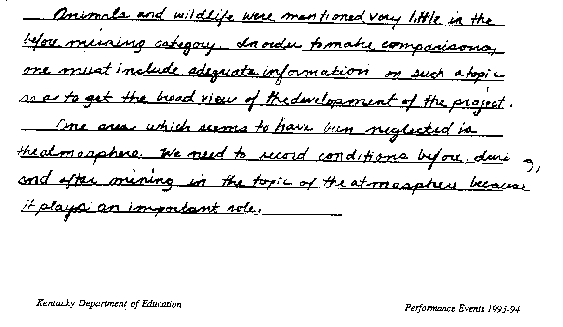 Animals and wildlife were mentioned very little in the
before mining category. In order to make comparisons,
one must include adequate information on such a topic
so as to get the broad view of the development of the project.
One area which seems to have been neglected is
the atmosphere. We need to record conditions before, during,
and after mining in the topic of the atmosphere because
it plays an important role.
Kentucky Department of Education
Performance Events 1993-94